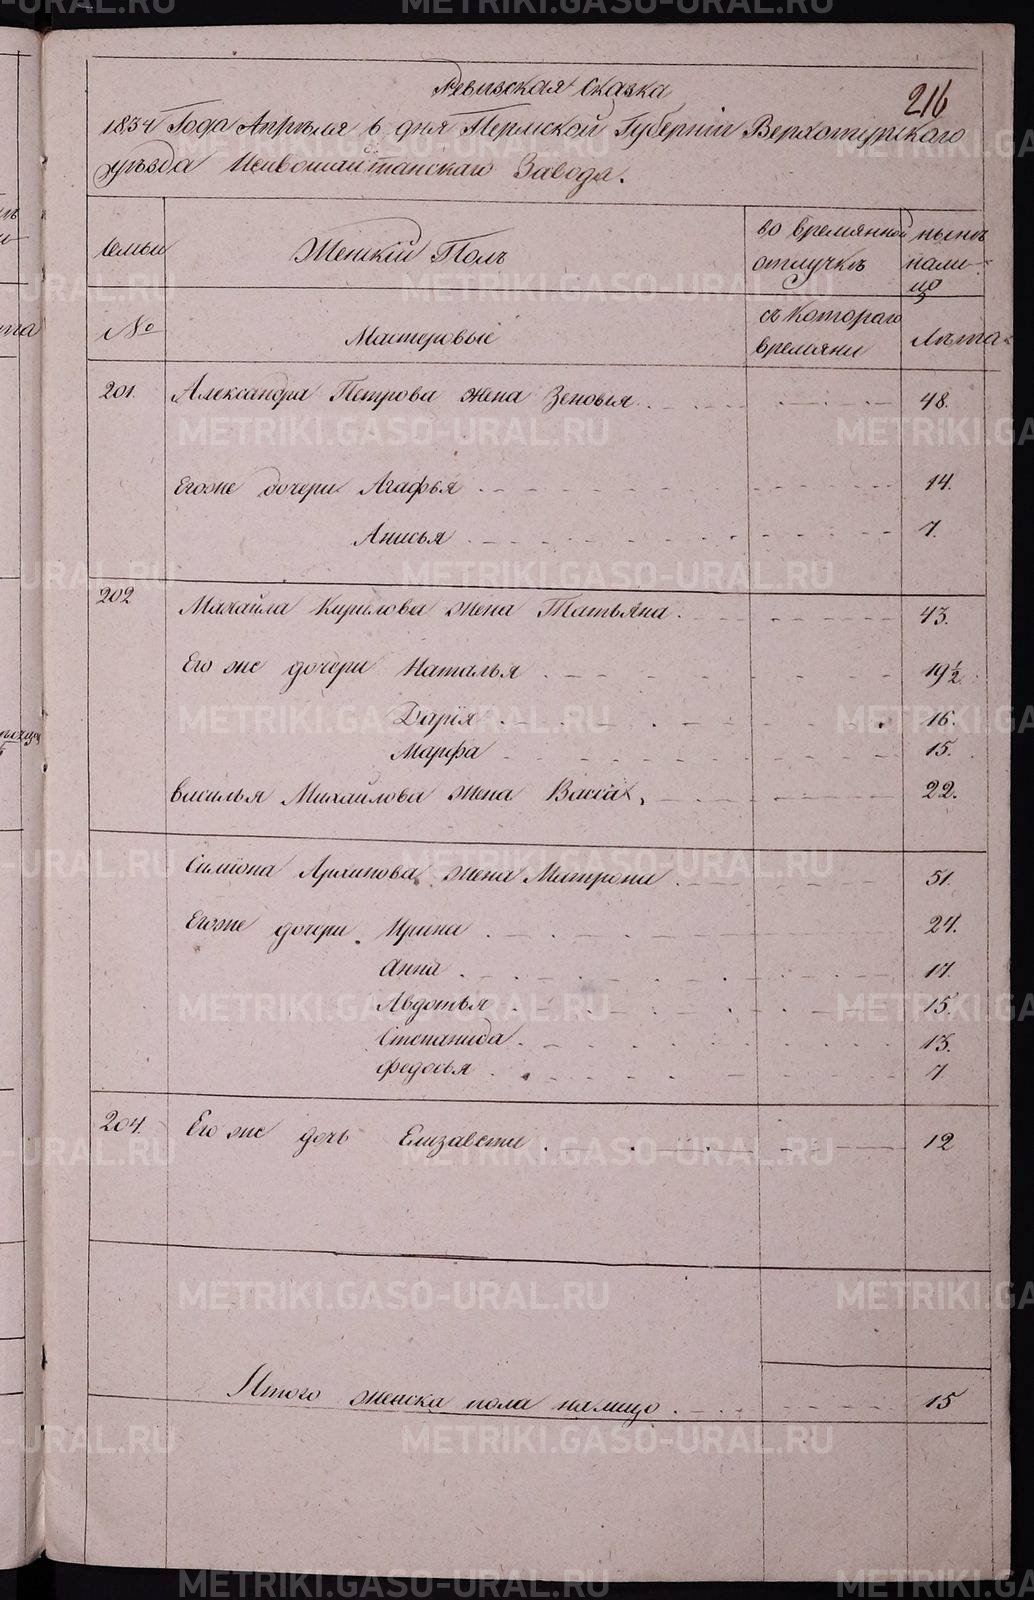 Ревизская сказка
216
1834 Года Апрѣля 6 дня Пермской Губерніи Верхотурского
уѣзда Нейвошайтанскаго Завода.
Семьи
Женскій Полъ
во времянной отлучкѣ
нынѣ на лицо
№
Мастеровые
съ котораго времяни
Лѣта
201. Александра Петрова жена Зеновья 48.
Егоже дочери Агафья 14.
Анисья 7.
202 Михайла Кирилова жена Татьяна. 43.
Его же дочери Наталья 19½
Дарія 16.
Марфа 15.
Василья Михайлова жена Васса 22.
Симіона Архипова жена Матрона 51.
Егоже дочери Ирина 24.
Анна 17.
Авдотья 15.
Степанида 13.
Федосья 7
204. Его же дочь Елизавета 12
Итого женска пола налицо 15
METRIKI.GASO-URAL.RU